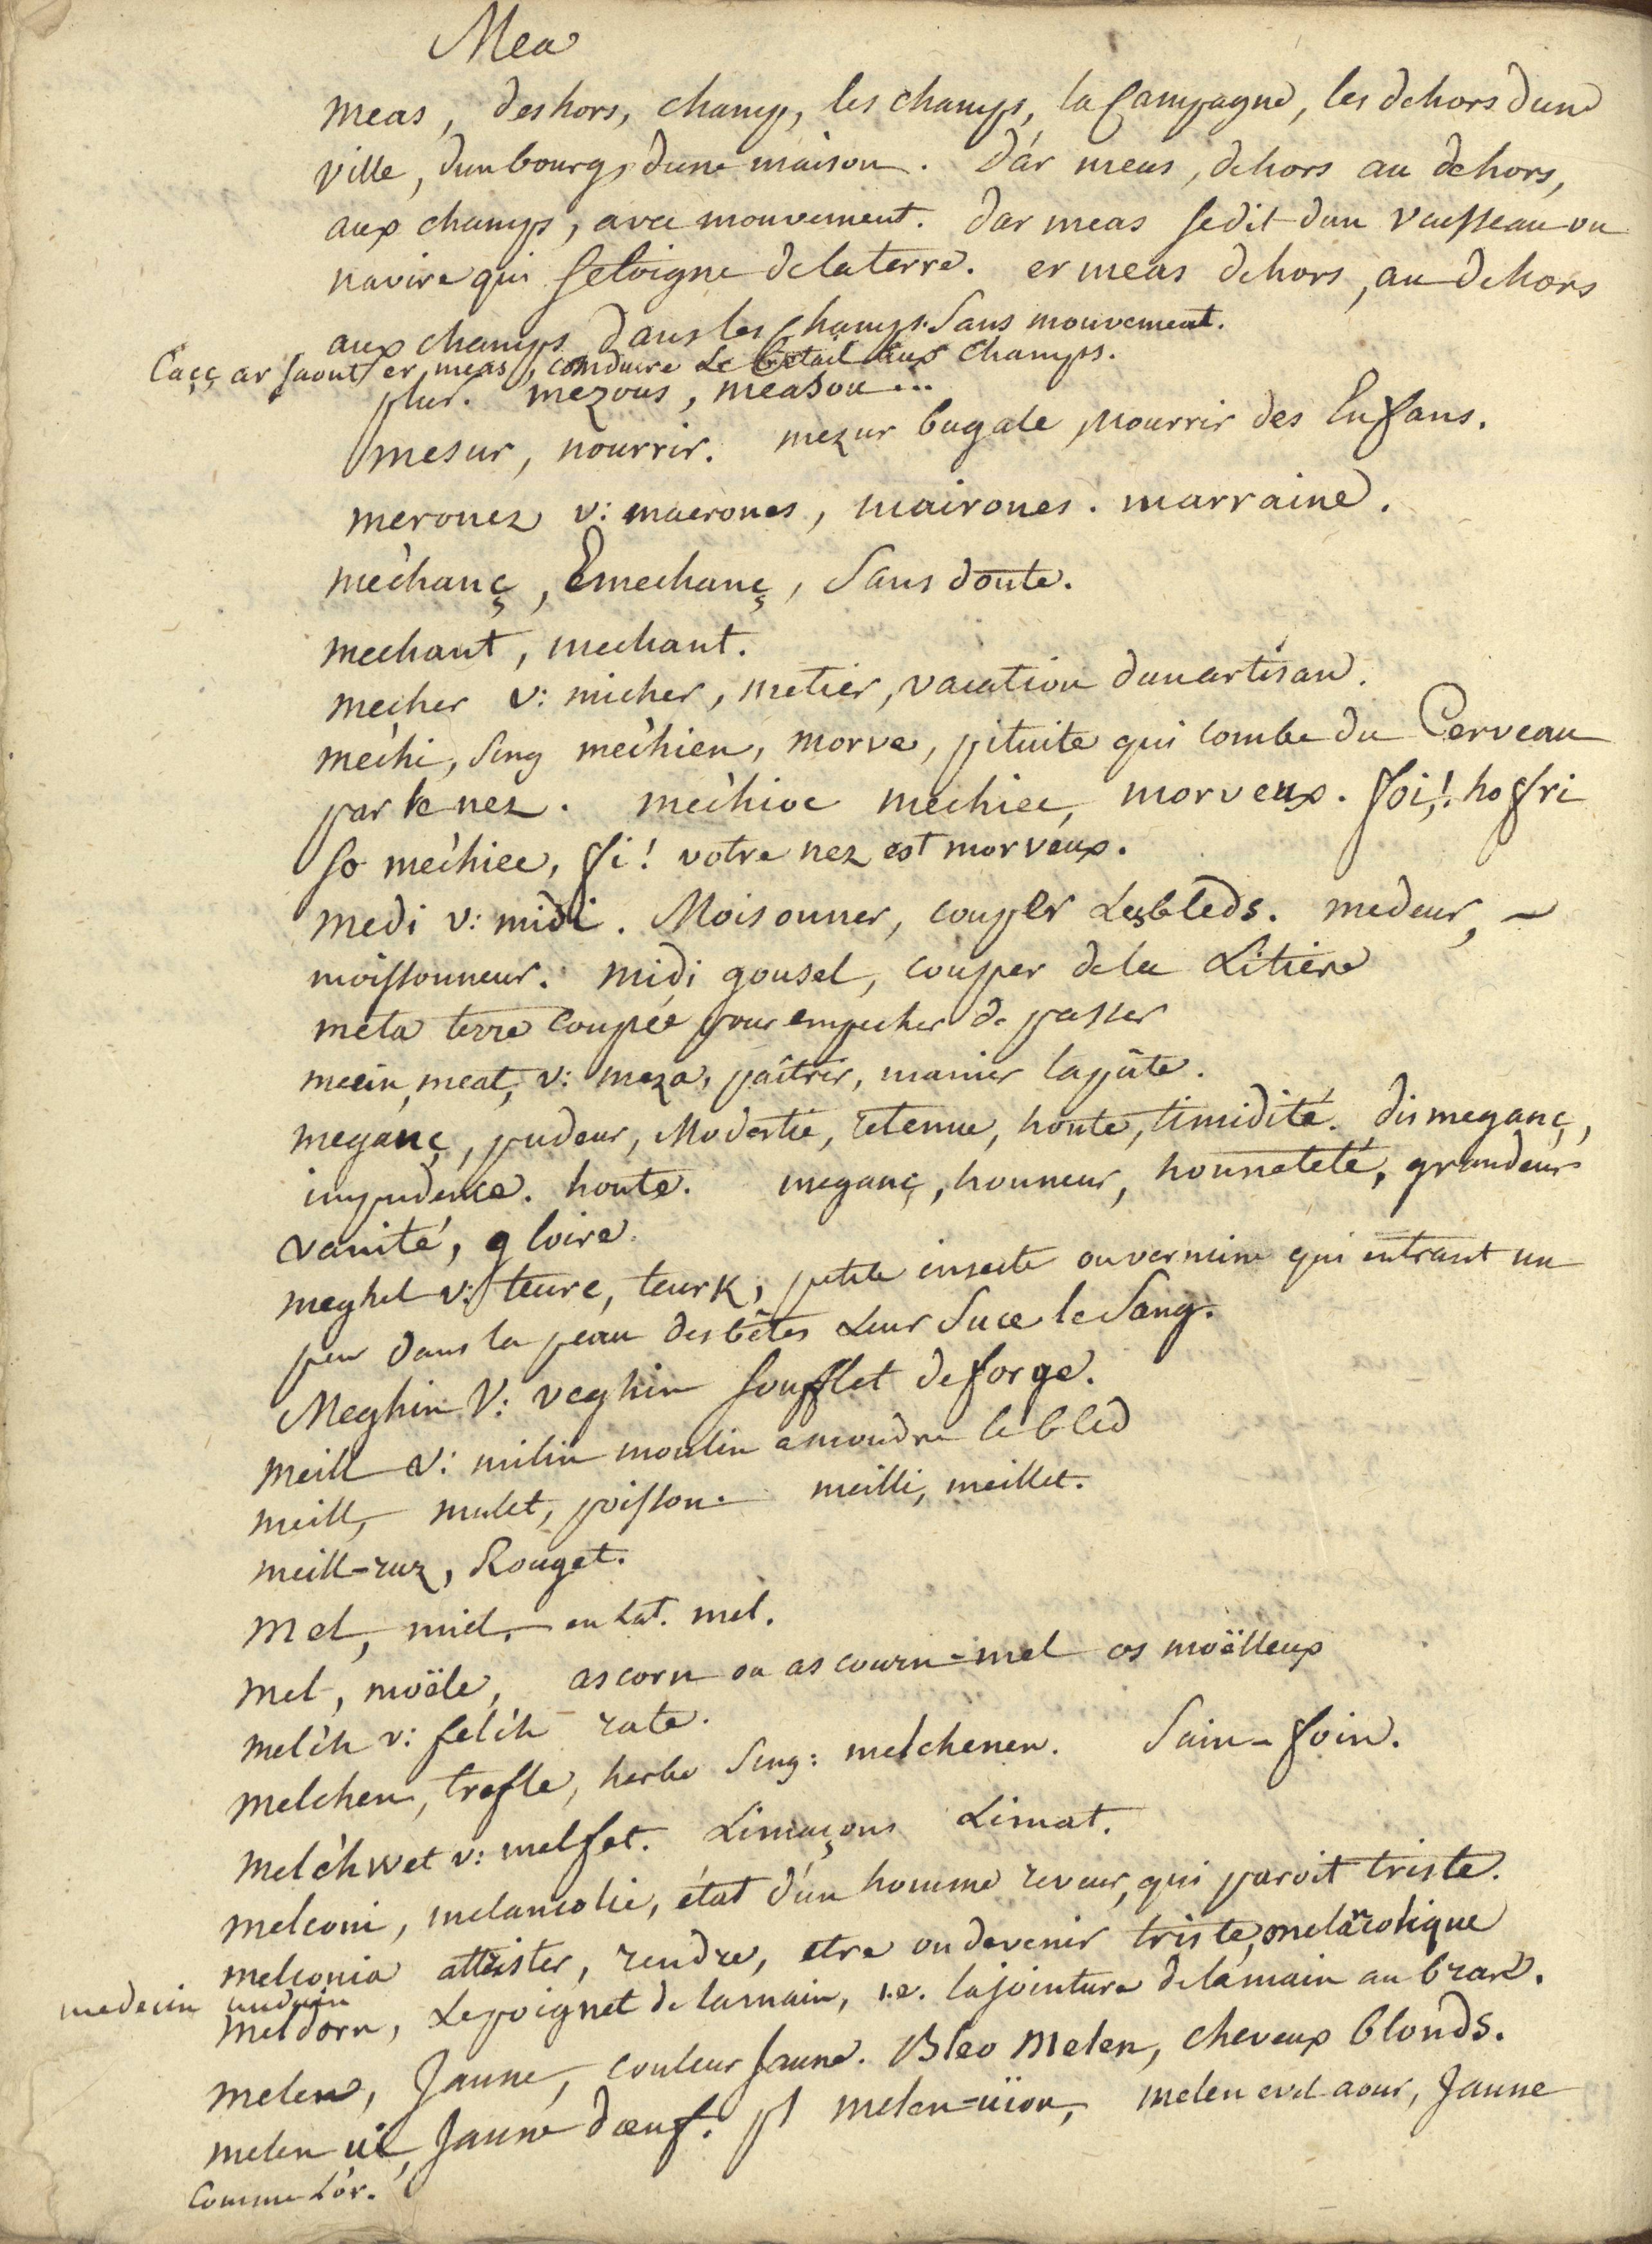 Mea
meas, deshors, champ, les champs, la Campagne, les dehors dune
ville, dun bourg, dune maison. d'ar meas, dehors au dehors,
aux champs, avec mouvement. dar meas se dit dun vaisseau ou
navire qui seloigne de la terre. er meas dehors, au dehors
aux champs dans les champs. Sans mouvement.
Caçç ar saout er meas, conduire Le betail aux champs.
plur. mezous, measou...
mesur, nourrir. mezur bugale, nourrir des Enfans.
merouez v: maeroues, mairoues. marraine.
mec'hanç, Emechanç, Sans doute.
mechant, mechant.
mecher v: micher, metier, vacation dun artisan.
mec'hi, Sing mec'hien, morve, pituite qui tombe du Cerveau
par le nez. mec'hioc mechiec, morveux. foi,! ho fri
so mec'hiec, fi! votre nez est morveux.
medi v: midi. Moisonner, couper Les bleds. medeur, ~
moissonneur. midi gousel, couper de la Litiere
meta terre coupée pour empecher de passer
meein, meat, v: meza, paîtrir, manier la pâte.
meganç, pudeur, Modestie, retenue, honte, timidité. dismeganç,
impudence. honte. meganç, honneur, honneteté, grandeur
vanité, gloire.
meghel v: teurc, teurk, petite insecte ou vermine qui entrant un
peu dans la peau des bêtes Leur Suce le Sang.
Meghin V: veghin soufflet de forge.
meill v: milin moulin a moudre le bled
meill, mulet, poisson. meilli, meillet.
meill-ruz, Rouget.
Mel, miel, en Lat. mel.
mel, moële, ascorn ou ascourn-mel os moëlleux
melc'h v: felc'h rate.
melchen, trefle, herbe Sing: melchenen. Sain-foin.
melc'hwet v: melfet. Limaçons Limat.
melconi, melancolie, état d'un homme reveur, qui paroit triste.
melconia attrister, rendre, etre ou devenir triste, melancolique
medecin
meldorn, Le poignet de la main, i.e. la jointure de la main au bras.
melen, Jaune, couleur Jaune. Bleo Melen, cheveux blonds.
melen ui, Jaune dœuf. pl melen-üiou, melen evel aour, Jaune
Comme L'or.